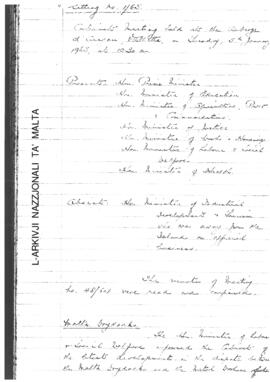 Sitting No. 1/65.
Cabinet Meeting held at the Auberge
d'Aragon, Valletta, on Tuesday, 5th January,
1965, at 10.30 a.m.
Present: Hon. Prime Minister
Hon. Minister of Education
Hon. Minister of Agriculture, Power
& Communications
Hon. Minister of Justice
Hon. Minister of Works & Housing
Hon. Minister of Labour & Social
Welfare
Hon. Minister of Health.
Absent: Hon. Minister of Industrial
Development & Tourism
who was away from the
Island on official
business.
The minutes of Meeting
No. 48/64 were read and confirmed.
Malta Drydocks
The Hon. Minister of Labour
& Social Welfare informed the Cabinet of
the latest developments in the dispute between
the Malta Drydocks and the Metal Workers
L-ARKIVJI NAZZJONALI TA' MALTA